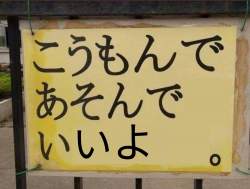 こうもんで
あそんで
いいよ。